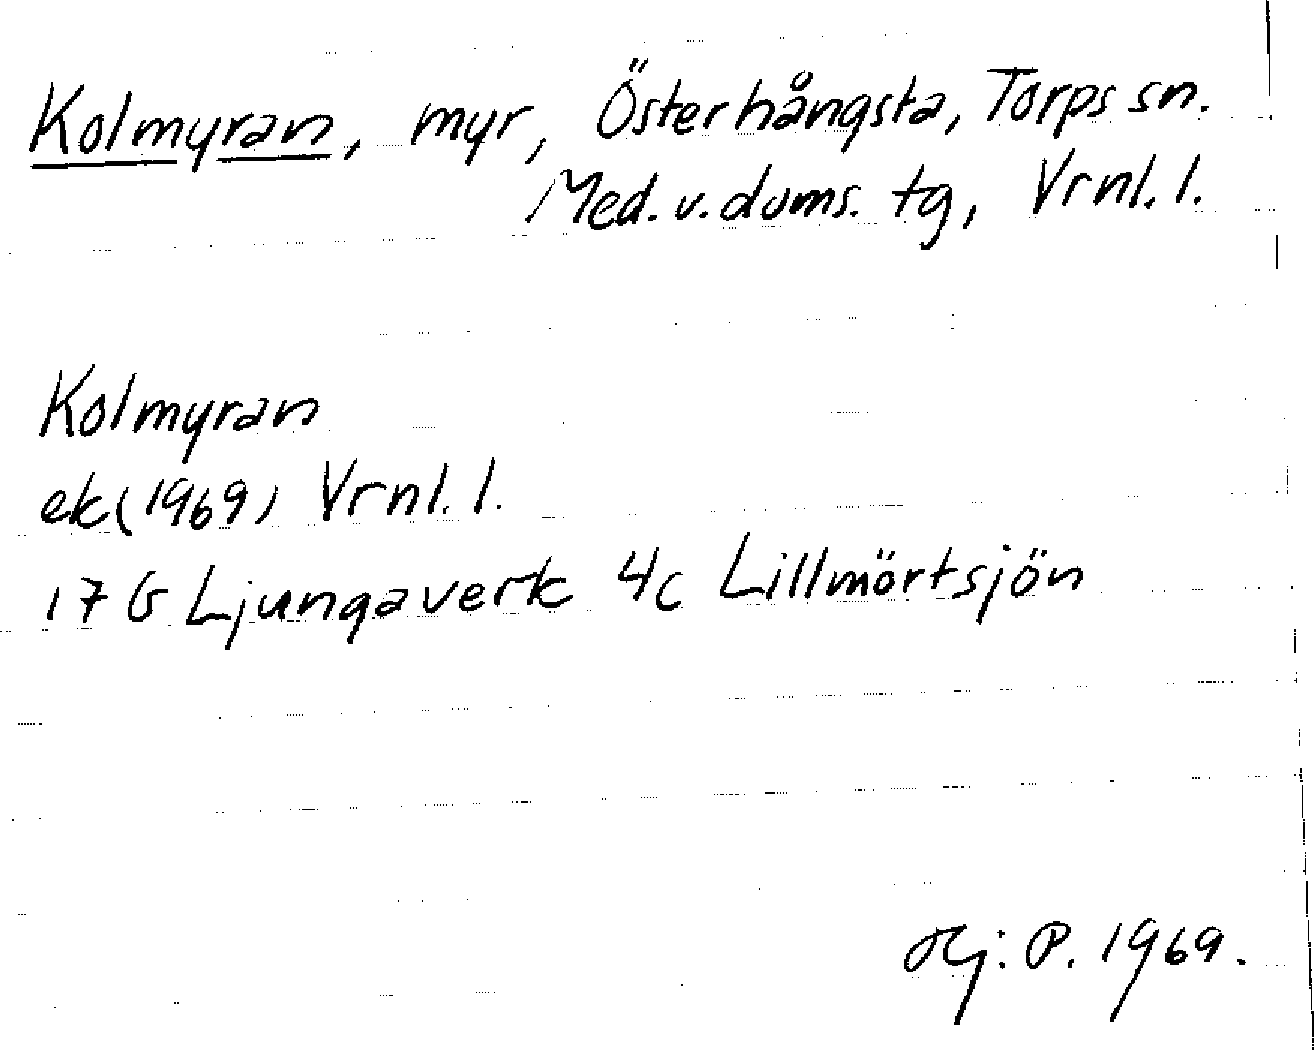 Kolmyran, myr, Österhångsta, Torps sn.
Med. v. doms. tg, Vrnl. l.
Kolmyran
ek (1969) Vrnl. l.
17 G Ljungaverk 4c Lillmörtsjön
Hj. P. 1969.